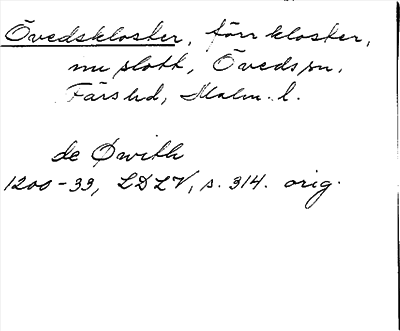 Övedskloster, förr kloster,
nu slott, Öveds sn,
Färs hd, Malm. l.
de Øwith
1200-33, LDLV, s. 314. orig.